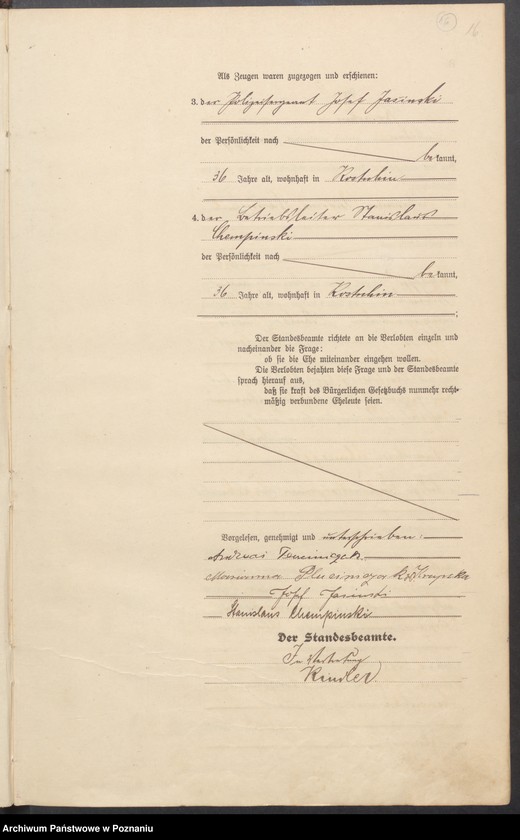 16
16
Als Zeugen waren zugezogen und erschienen:
3. der Polizeisergeant Josef Jasinski
der Persönlichkeit nach
bekannt,
36 Jahre alt, wohnhaft in Kostschin
4. der Betriebsleiter Stanislaus
Chempinski
der Persönlichkeit nach
bekannt,
36 Jahre alt, wohnhaft in Kostschin
;
Der Standesbeamte richtete an die Verlobten einzeln und
nacheinander die Frage:
ob sie die Ehe miteinander eingehen wollen.
Die Verlobten bejahten diese Frage und der Standesbeamte
sprach hierauf aus,
daß sie kraft des Bürgerlichen Gesetzbuchs nunmehr recht-
mäßig verbundene Eheleute seien.
Vorgelesen, genehmigt und unterschrieben:
Marianna
Josef Jasinski
Stanislaus Chempinski
Der Standesbeamte.
In Vertretung
Kendler
Archiwum Państwowe w Poznaniu